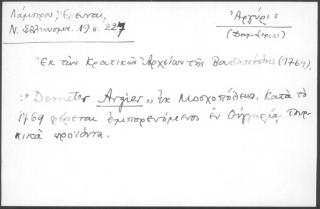 Λάμπρου, Ἔρευναι,
Ν. Ἑλληνομν. 19 σ. 227
Ἀργύρις
(Δημήτριος)
Ἐκ τῶν Κρατικῶν Ἀρχείων τῆς Βουδαπέστης (1769).
"Demeter Argires" ἐκ Μοσχοπόλεως. Κατὰ τὸ
1769 φέρεται ἐμπορευόμενος ἐν Οὑγγαρίᾳ, τουρ-
κικὰ προϊόντα.